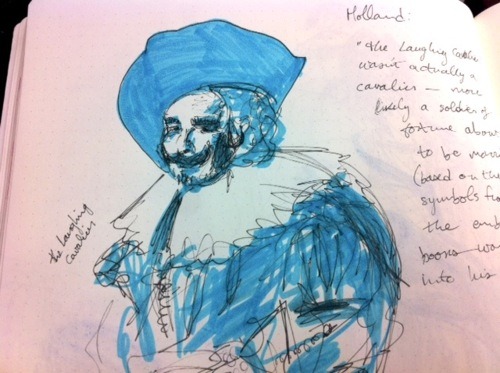 the Laughing
cavalier
Holland:
"the Laughing Cavalier
wasn't actually a
cavalier — more
likely a soldier of
fortune about
to be marr
(based on the
symbols fro
the emb
books wo
into his